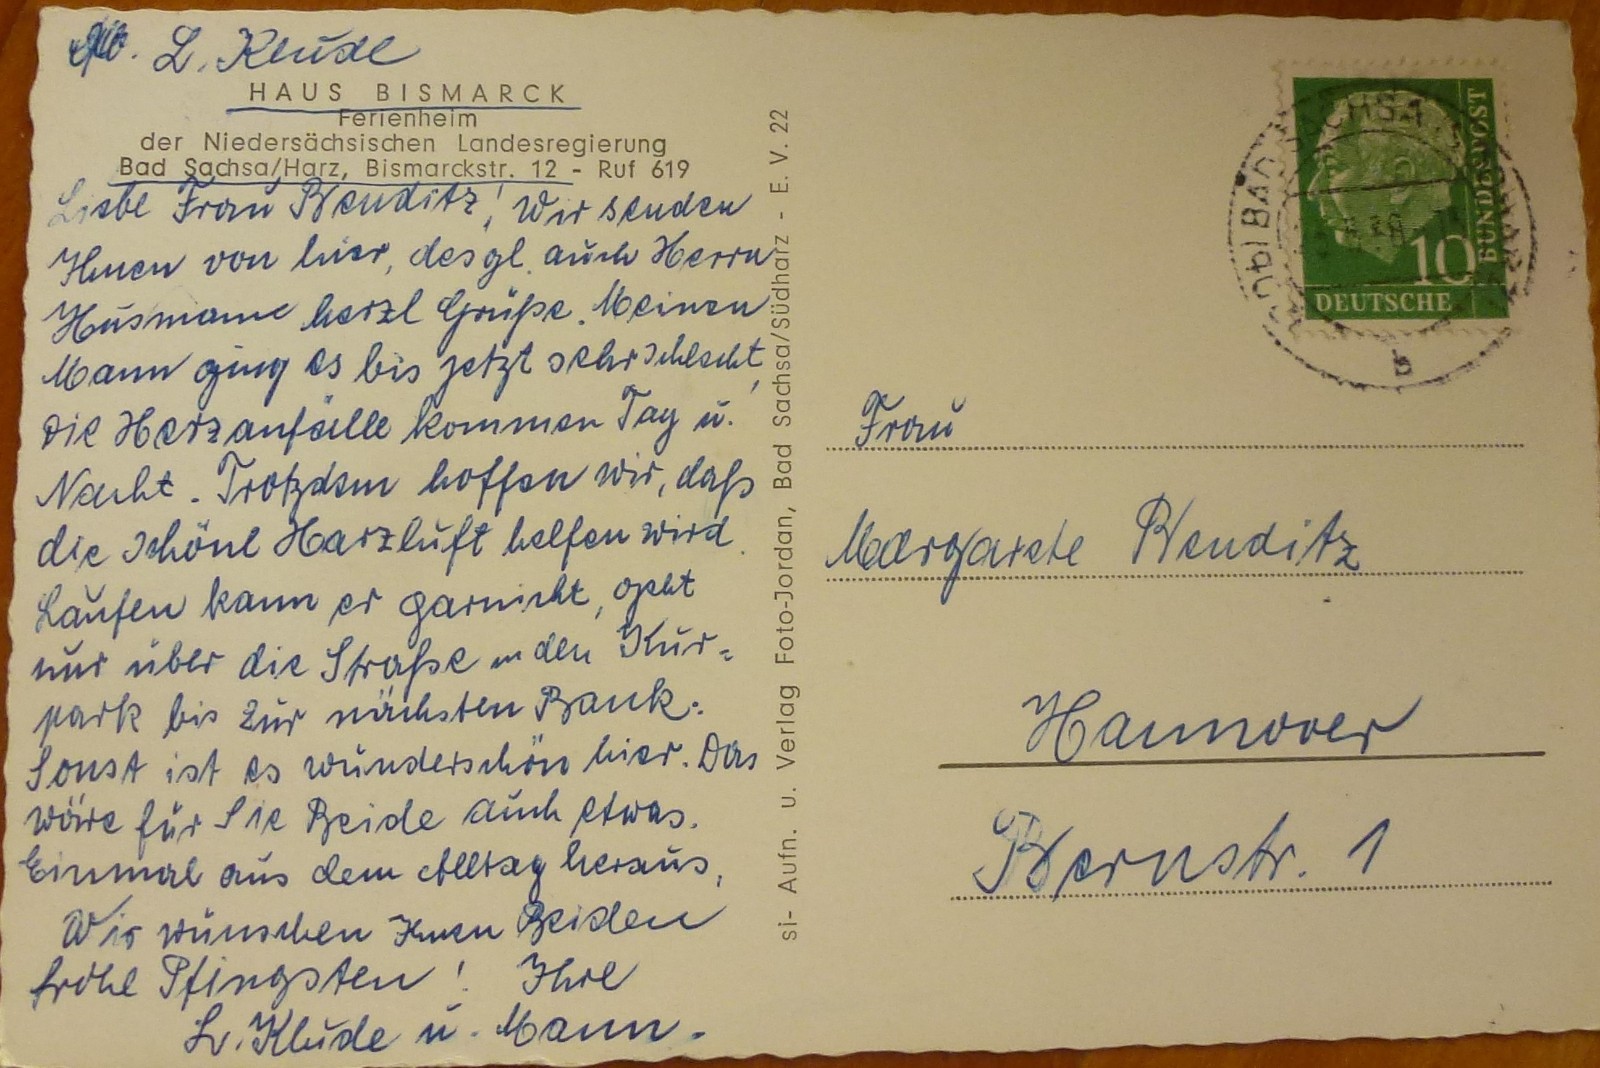 L. Klude
HAUS BISMARCK
Ferienheim
der Niedersächsischen Landesregierung
Bad Sachsa/Harz, Bismarckstr. 12 - Ruf 619
Liebe Frau Benditz! Wir senden
Ihnen von hier, desgl. auch Herrn
Husmann herzl Grüße. Meinen
Mann ging es bis jetzt sehr schlecht,
die Herzanfälle kommen Tag u.
Nacht. Trotzdem hoffen wir, daß
die schöne Harzluft helfen wird.
Laufen kann er garnicht, geht
nur über die Straße in den Kur=
park bis zur nächsten Bank.
Sonst ist es wunderschön hier. Das
wäre für Sie Beide auch etwas.
Einmal aus dem Alltag heraus,
Wir wünschen Ihnen Beiden
frohe Pfingsten! Ihre
L. Klude u. Mann.
si- Aufn. u. Verlag Foto-Jordan, Bad Sachsa/Südharz - E. V. 22
10
DEUTSCHE
BUNDESPOST
BAD SACHSA
b
Frau
Margarete Benditz
Hannover
Bernstr. 1